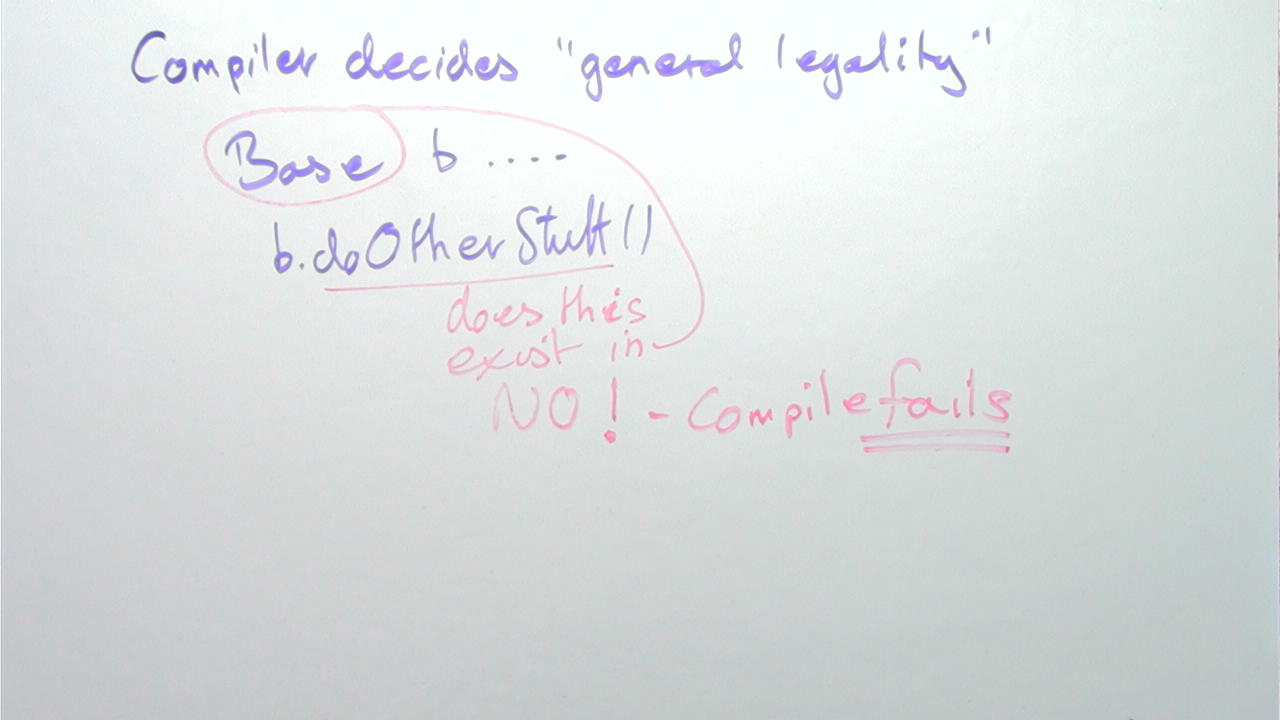 Compiler decides "general legality"
Base b ....
b.doOtherStuff()
does this
exist in
NO! - Compile fails